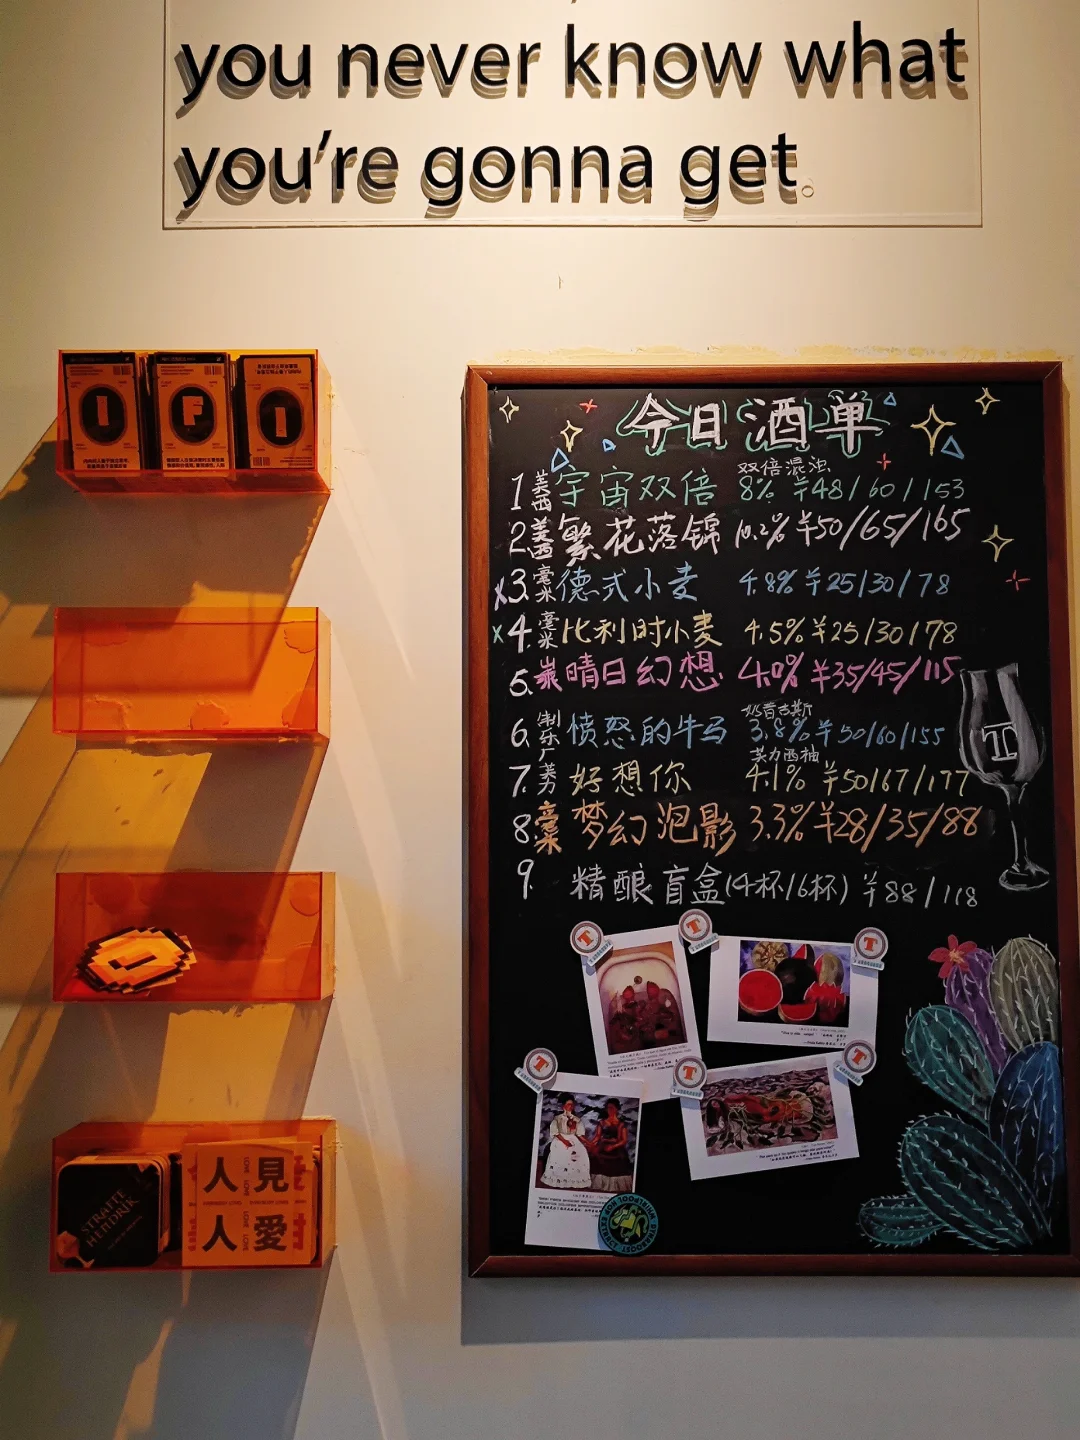 you never know what
you're gonna get.
I
F
I
今日酒单
双倍混浊
1 美西 宇宙双倍 8% ¥48/60/153
2. 美西 繁花落锦 10.2% ¥50/65/165
x3. 毫米 德式小麦 4.8% ¥25/30/78
x4. 毫米 比利时小麦 4.5% ¥25/30/78
5. 晴日幻想 4.0% ¥35/45/115
奶昔古斯
6. 制乐厂 愤怒的牛马 3.8% ¥50/60/155
芙力西柚
7. 芙力 好想你 4.1% ¥50/67/177
8. 毫米 梦幻泡影 3.3% ¥28/35/88
9. 精酿盲盒(4杯/6杯) ¥88/118
T
T
T
T
T
T
T
STRAFFE
HENDRIK
人見
人愛
LOVE